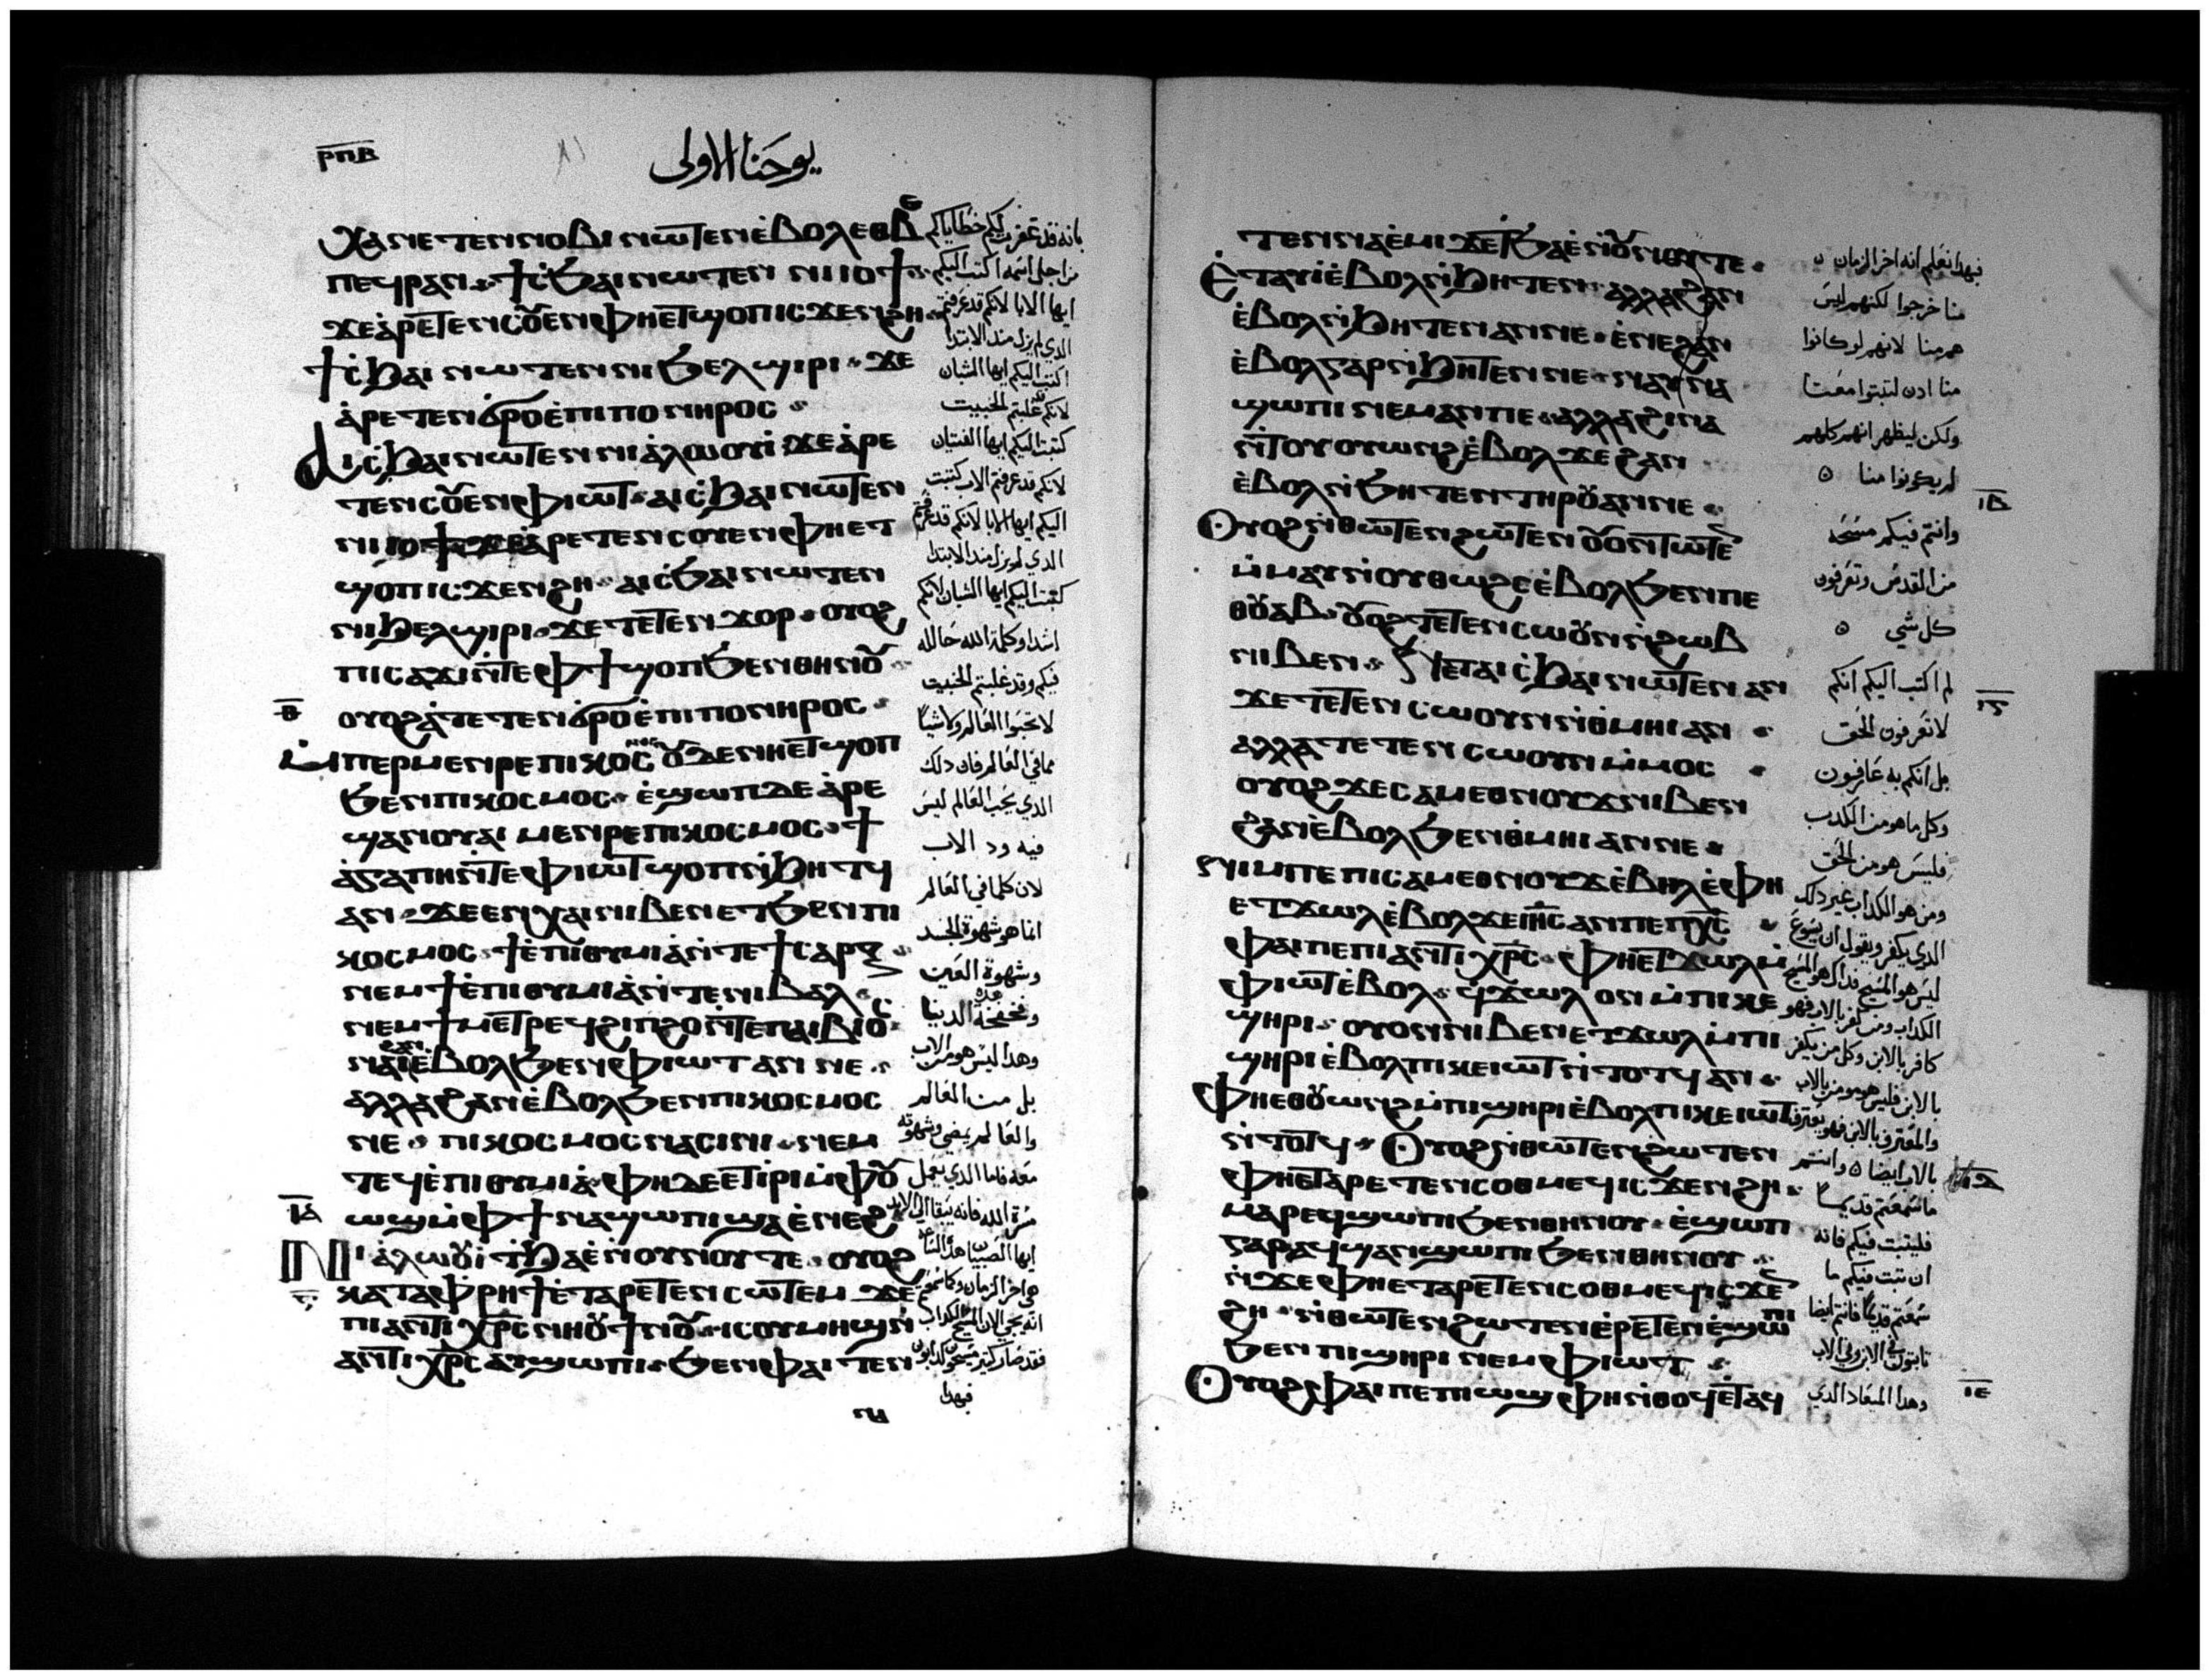 ⲣⲡⲃ
يوحنا الاولى
ⲭⲁⲛⲉⲧⲉⲛⲛⲟⲃⲓ ⲛⲱⲧⲉⲛ ⲉ̀ⲃⲟⲗ ⲉⲑⲃⲉ
ⲡⲉϥⲣⲁⲛ ϯⲥ̀ϧⲁⲓ ⲛⲱⲧⲉⲛ ⲛⲓⲓⲟϯ
ϫⲉ ⲁ̀ⲣⲉⲧⲉⲛⲥⲟ̅ⲉⲛ ⲫⲏⲉⲧϣⲟⲡ ⲓⲥϫⲉⲛϩⲏ
ϯⲥ̀ϧⲁⲓ ⲛⲱⲧⲉⲛ ⲛⲓϧⲉⲗϣⲓⲣⲓ ϫⲉ
ⲁ̀ⲣⲉⲧⲉⲛϭⲣⲟ ⲉ̀ⲡⲓⲡⲟⲛⲏⲣⲟⲥ
ⲁⲓⲥ̀ϧⲁⲓ ⲛⲱⲧⲉⲛ ⲛⲓⲁ̀ⲗⲱⲟⲩⲓ̀ ϫⲉ ⲁ̀ⲣⲉ
ⲧⲉⲛⲥⲟ̅ⲉⲛ ⲫⲓⲱⲧ ⲁⲓⲥ̀ϧⲁⲓ ⲛⲱⲧⲉⲛ
ⲛⲓⲓⲟϯ ϫⲉ ⲁ̀ⲣⲉⲧⲉⲛⲥⲟⲩⲉⲛ ⲫⲏⲉⲧ
ϣⲟⲡ ⲓⲥϫⲉⲛϩⲏ ⲁⲓⲥ̀ϧⲁⲓ ⲛⲱⲧⲉⲛ
ⲛⲓϧⲉⲗϣⲓⲣⲓ ϫⲉ ⲧⲉⲧⲉⲛϫⲟⲣ ⲟⲩⲟϩ
ⲡⲓⲥⲁϫⲓ ⲛ̀ⲧⲉ ⲫϯ ϣⲟⲡ ϧⲉⲛⲑⲏⲛⲟ̅
ⲟⲩⲟϩ ⲁ̀ⲧⲉⲧⲉⲛϭⲣⲟ ⲉ̀ⲡⲓⲡⲟⲛⲏⲣⲟⲥ
ⲙ̀ⲡⲉⲣⲙⲉⲛⲣⲉ ⲡⲓⲕⲟⲥⲙⲟⲥ ⲟ̅ⲇⲉ ⲛⲏⲉⲧϣⲟⲡ
ϧⲉⲛ ⲡⲓⲕⲟⲥⲙⲟⲥ ⲉ̀ϣⲱⲡ ⲇⲉ ⲁ̀ⲣⲉ
ϣⲁⲛ ⲟⲩⲁⲓ ⲙⲉⲛⲣⲉ ⲡⲓⲕⲟⲥⲙⲟⲥ ϯ
ⲁ̀ⲅⲁⲡⲏ ⲛ̀ⲧⲉ ⲫⲓⲱⲧ ϣⲟⲡ ⲛ̀ϧⲏⲧϥ
ⲁⲛ ϫⲉ ⲉⲛⲭⲁⲓ ⲛⲓⲃⲉⲛ ⲉⲧϧⲉⲛ ⲡⲓ
ⲕⲟⲥⲙⲟⲥ ϯⲉ̀ⲡⲓⲑⲩⲙⲓⲁ̀ ⲛ̀ⲧⲉ ϯⲥⲁⲣⲝ
ⲛⲉⲙ ϯⲉ̀ⲡⲓⲑⲩⲙⲓⲁ̀ ⲛ̀ⲧⲉ ⲛⲓⲃⲁⲗ
ⲛⲉⲙ ϯⲙⲉⲧⲣⲉϥϩⲓⲡϩⲟ ⲛ̀ⲧⲉ ⲡⲁⲓⲃⲓⲟⲥ
ⲛⲁⲓ ϩⲁⲛⲉ̀ⲃⲟⲗ ϧⲉⲛ ⲫⲓⲱⲧ ⲁⲛ ⲛⲉ
ⲁⲗⲗⲁ ϩⲁⲛⲉ̀ⲃⲟⲗ ϧⲉⲛ ⲡⲓⲕⲟⲥⲙⲟⲥ
ⲛⲉ ⲡⲓⲕⲟⲥⲙⲟⲥ ⲛⲁⲥⲓⲛⲓ ⲛⲉⲙ
ⲧⲉϥⲉ̀ⲡⲓⲑⲩⲙⲓⲁ̀ ⲫⲏ ⲇⲉ ⲉⲧⲓ̀ⲣⲓ ⲙ̀ⲫⲟ̅
ⲱϣ ⲙ̀ⲫϯ ⲛⲁϣⲱⲡⲓ ϣⲁ ⲉ̀ⲛⲉϩ
ⲓⲁ
ⲛⲓⲁ̀ⲗⲱⲟ̅ⲓ̀ ⲧ̀ϧⲁⲉ̀ ⲛ̀ⲟⲩⲛⲟⲩ ⲧⲉ ⲟⲩⲟϩ
ⲕⲁⲧⲁ ⲫⲣⲏϯ ⲉ̀ⲧⲁⲣⲉⲧⲉⲛⲥⲱⲧⲉⲙ ϫⲉ
ⲡⲓⲁⲛⲧⲓⲭⲣⲥ ⲛⲏⲟ̅ ϯⲛⲟ̅ ⲓⲥ ⲟⲩⲙⲏϣ ⲛ̀
ⲁⲛⲧⲓⲭⲣⲥ ⲁⲩϣⲱⲡⲓ ϧⲉⲛ ⲫⲁⲓ ⲧⲉⲛ
بانه قد غفرت لكم خطاياكم
من اجل اسمه اكتب اليكم
ايها الابا لانكم قد عرفتم
الذي لم يزل منذ الابتدا
اكتب اليكم ايها الشبان
لانكم غلبتم الخبيث
كتبت اليكم ايها الفتيان
لانكم قد عرفتم الاب كتبت
اليكم ايها الابا لانكم قد عرفتم
الدي لم يزل مند الابتدا
كتبت اليكم ايها الشبان لانكم
اشدا وكلمة الله حالله
فيكم وقد غلبتم الخبيث
لا تحبوا العالم ولا شيا
مما في العالم فان دلك
الدي يحب العالم ليس
فيه ود الاب
لان كلما في العالم
انما هو شهوة الجسد
وشهوة العين
وهدا ليس هو من الاب
بل من العالم
والعالم يمضي وشهوته
معه فاما الدي يعمل
فبهدا
ⲛⲁ
ⲧⲉⲛⲛⲁⲉ̀ⲙⲓ ϫⲉ ⲧ̀ϧⲁⲉ̀ ⲛ̀ⲟ̅ⲛⲟⲩ ⲧⲉ
ⲉ̀ⲧⲁⲩⲓ̀ ⲉ̀ⲃⲟⲗ ⲛ̀ϧⲏⲧⲉⲛ ⲁⲗⲗⲁ ϩⲁⲛ
ⲉ̀ⲃⲟⲗ ⲛ̀ϧⲏⲧⲉⲛ ⲁⲛ ⲛⲉ ⲉ̀ⲛⲉ ϩⲁⲛ
ⲉ̀ⲃⲟⲗ ⲅⲁⲣ ⲛ̀ϧⲏⲧⲉⲛ ⲛⲉ ⲛⲁⲩⲛⲁ
ϣⲱⲡⲓ ⲛⲉⲙⲁⲛ ⲡⲉ ⲁⲗⲗⲁ ϩⲓⲛⲁ
ⲛ̀ⲧⲟⲩⲟⲩⲱⲛϩ ⲉ̀ⲃⲟⲗ ϫⲉ ϩⲁⲛ
ⲉ̀ⲃⲟⲗ ⲛ̀ϧⲏⲧⲉⲛ ⲧⲏⲣⲟ̅ ⲁⲛ ⲛⲉ
ⲟⲩⲟϩ ⲛ̀ⲑⲱⲧⲉⲛ ϩⲱⲧⲉⲛ ⲟ̅ⲟⲛⲧⲱⲧⲉⲛ
ⲙ̀ⲙⲁⲩ ⲛ̀ⲟⲩⲑⲱϩⲥ ⲉ̀ⲃⲟⲗ ϧⲉⲛ ⲡⲉ
ⲑⲟ̅ⲁⲃ ⲟ̅ⲟϩ ⲧⲉⲧⲉⲛⲥⲱⲟ̅ⲛ ⲛ̀ϩⲱⲃ
ⲛⲓⲃⲉⲛ ⲛⲉⲧⲁⲓⲥ̀ϧⲁⲓ ⲛⲱⲧⲉⲛ ⲁⲛ
ϫⲉ ⲧⲉⲧⲉⲛⲥⲱⲟⲩⲛ ⲛ̀ⲑⲙⲏⲓ ⲁⲛ
ⲁⲗⲗⲁ ⲧⲉⲧⲉⲛⲥⲱⲟⲩⲛ ⲙ̀ⲙⲟⲥ
ⲟⲩⲟϩ ϫⲉ ⲥⲁⲙⲉⲑⲛⲟⲩϫ ⲛⲓⲃⲉⲛ
ϩⲁⲛⲉ̀ⲃⲟⲗ ϧⲉⲛ ⲑⲙⲏⲓ ⲁⲛ ⲛⲉ
ⲛⲓⲙ ⲡⲉ ⲡⲓⲥⲁⲙⲉⲑⲛⲟⲩϫ ⲉ̀ⲃⲏⲗ ⲉ̀ⲫⲏ
ⲉⲧϫⲱⲗ ⲉ̀ⲃⲟⲗ ϫⲉ ⲓⲏⲥ ⲁⲛ ⲡⲉ ⲡⲭⲥ
ⲫⲁⲓ ⲡⲉ ⲡⲓⲁⲛⲧⲓⲭⲣⲥ ⲫⲏⲉⲧϫⲱⲗ ⲙ̀
ⲫⲓⲱⲧ ⲉ̀ⲃⲟⲗ ϥ̀ϫⲱⲗ ⲟⲛ ⲙ̀ⲡⲓⲕⲉ
ϣⲏⲣⲓ ⲟⲩⲟⲛ ⲛⲓⲃⲉⲛ ⲉⲧϫⲱⲗ ⲙ̀ⲡⲓ
ϣⲏⲣⲓ ⲉ̀ⲃⲟⲗ ⲡⲓⲕⲉⲓⲱⲧ ⲛ̀ⲧⲟⲧϥ ⲁⲛ
ⲫⲏⲉⲑⲟ̅ⲱⲛϩ ⲙ̀ⲡⲓϣⲏⲣⲓ ⲉ̀ⲃⲟⲗ ⲡⲓⲕⲉⲓⲱⲧ
ⲛ̀ⲧⲟⲧϥ ⲟⲩⲟϩ ⲛ̀ⲑⲱⲧⲉⲛ ϩⲱⲧⲉⲛ
ⲫⲏⲉⲧⲁⲣⲉⲧⲉⲛⲥⲟⲑⲙⲉϥ ⲓⲥϫⲉⲛϩⲏ
ⲙⲁⲣⲉϥϣⲱⲡⲓ ϧⲉⲛⲑⲏⲛⲟⲩ ⲉ̀ϣⲱⲡ
ⲅⲁⲣ ⲁϥϣⲁⲛϣⲱⲡⲓ ϧⲉⲛⲑⲏⲛⲟⲩ
ⲛ̀ϫⲉ ⲫⲏⲉⲧⲁⲣⲉⲧⲉⲛⲥⲟⲑⲙⲉϥ ⲓⲥϫⲉⲛ
ϩⲏ ⲛ̀ⲑⲱⲧⲉⲛ ϩⲱⲧⲉⲛ ⲉ̀ⲣⲉⲧⲉⲛⲉ̀ϣⲱⲡⲓ
ϧⲉⲛ ⲡⲓϣⲏⲣⲓ ⲛⲉⲙ ⲫⲓⲱⲧ
ⲟⲩⲟϩ ⲫⲁⲓ ⲡⲉ ⲡⲓⲱϣ ⲫⲏ ⲛ̀ⲑⲟϥ ⲉ̀ⲧⲁϥ
فبهدا نعلم انه اخر الزمان
منا خرجوا لكنهم ليس
هم منا لانهم لو كانوا
منا ادن لثبتوا معنا
ولكن ليظهر انهم كلهم
لم يكونوا منا
ⲓⲃ
وانتم فيكم مسحه
من القدس وتعرفون
كل شي
لم اكتب اليكم انكم
لا تعرفون الحق
بل انكم به عارفون
وكل ما هو من الكدب
فليس هو من الحق
ومن هو الكداب غير دلك
الدي يكفر ويقول ان يسوع
ليس هو المسيح
بالاب ايضا وانتم
ما سمعتم قديما
فليثبت فيكم فانه
ان ثبت فيكم ما
سمعتم قديما فانتم ايضا
ثابتون في الابن وفي الاب
وهدا الميعاد الدي
ⲓⲉ